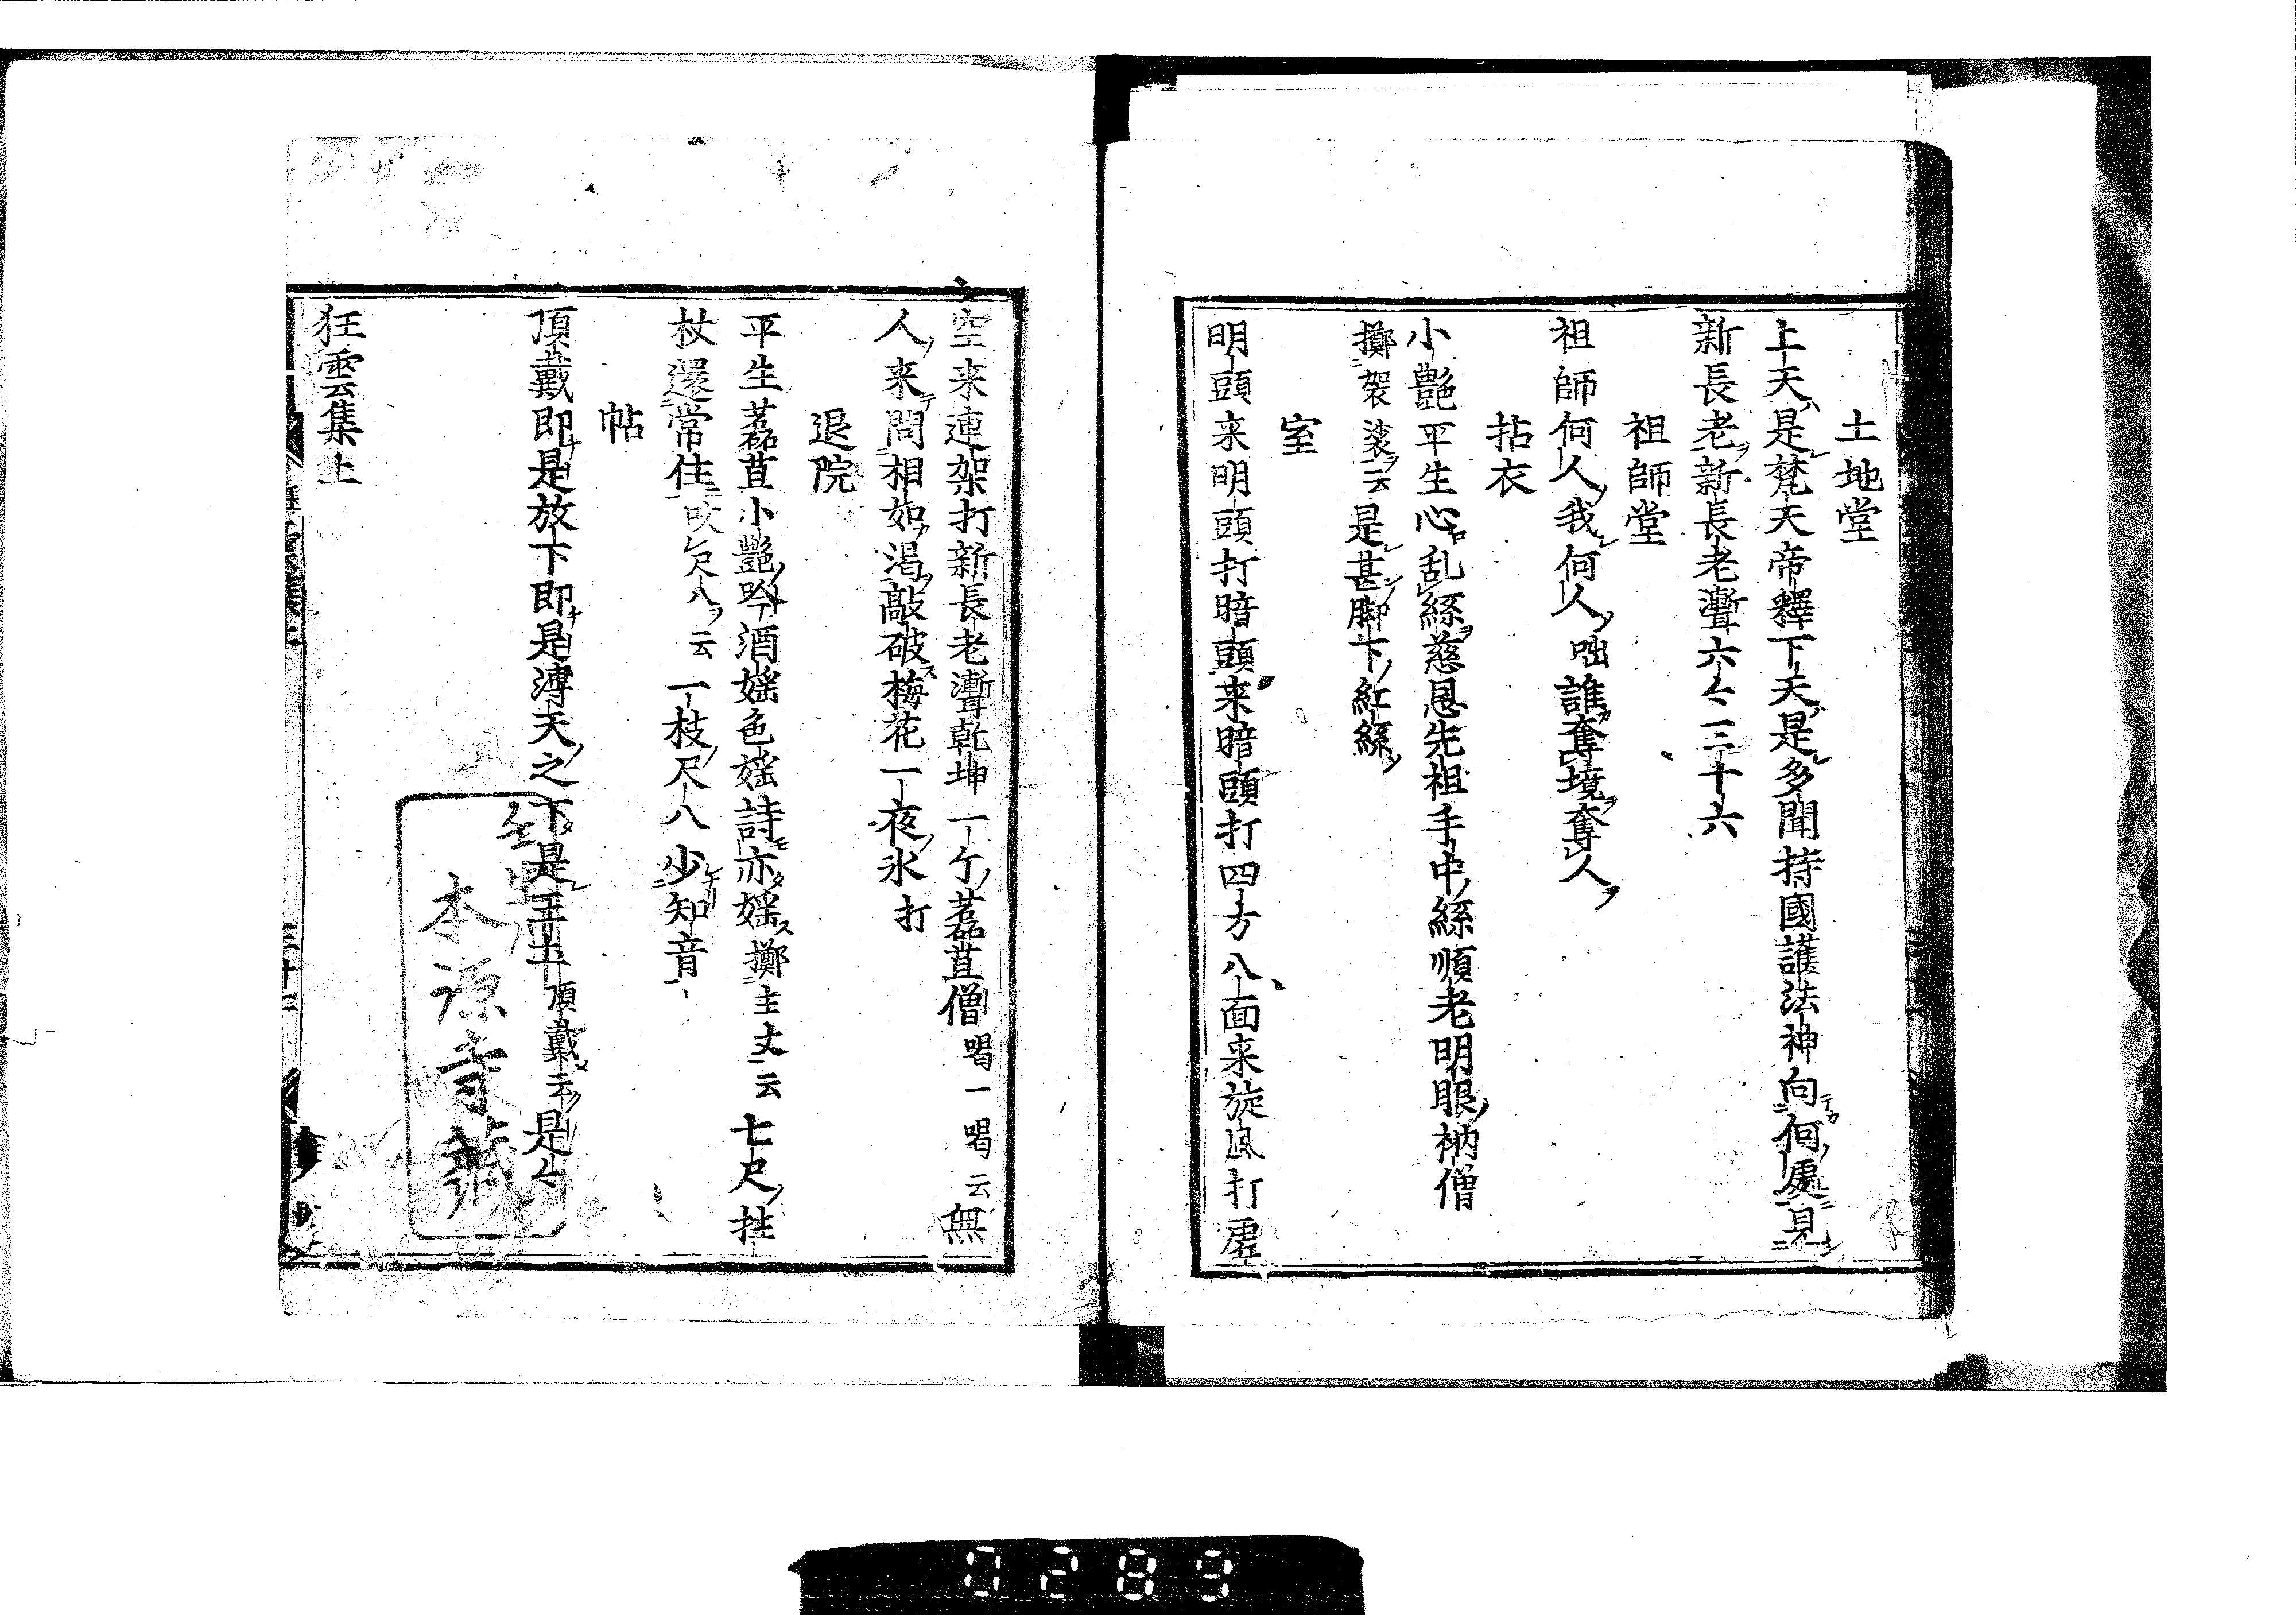 土地堂
上天是梵天帝釋下天是多聞持國護法神向何處見
新長老新長老聻六々三十六
祖師堂
祖師何人我何人咄誰奪境奪人
拈衣
小艶平生心乱絲慈恩先祖手中絲順老明眼衲僧
擲袈裟云是甚脚下紅絲
室
明頭来明頭打暗頭来暗頭打四方八面来旋風打虚
空来連架打新長老聻乾坤一个藞苴僧喝一喝云無
人来問相如渇敲破梅花一夜氷打
退院
平生藞苴小艶吟酒婬色婬詩亦婬擲主丈云七尺拄
杖還常住吹尺八云一枝尺八少知音
帖
頂戴即是放下即是溥天之下是王土頂戴云是々
狂雲集上
本源寺藏
0289